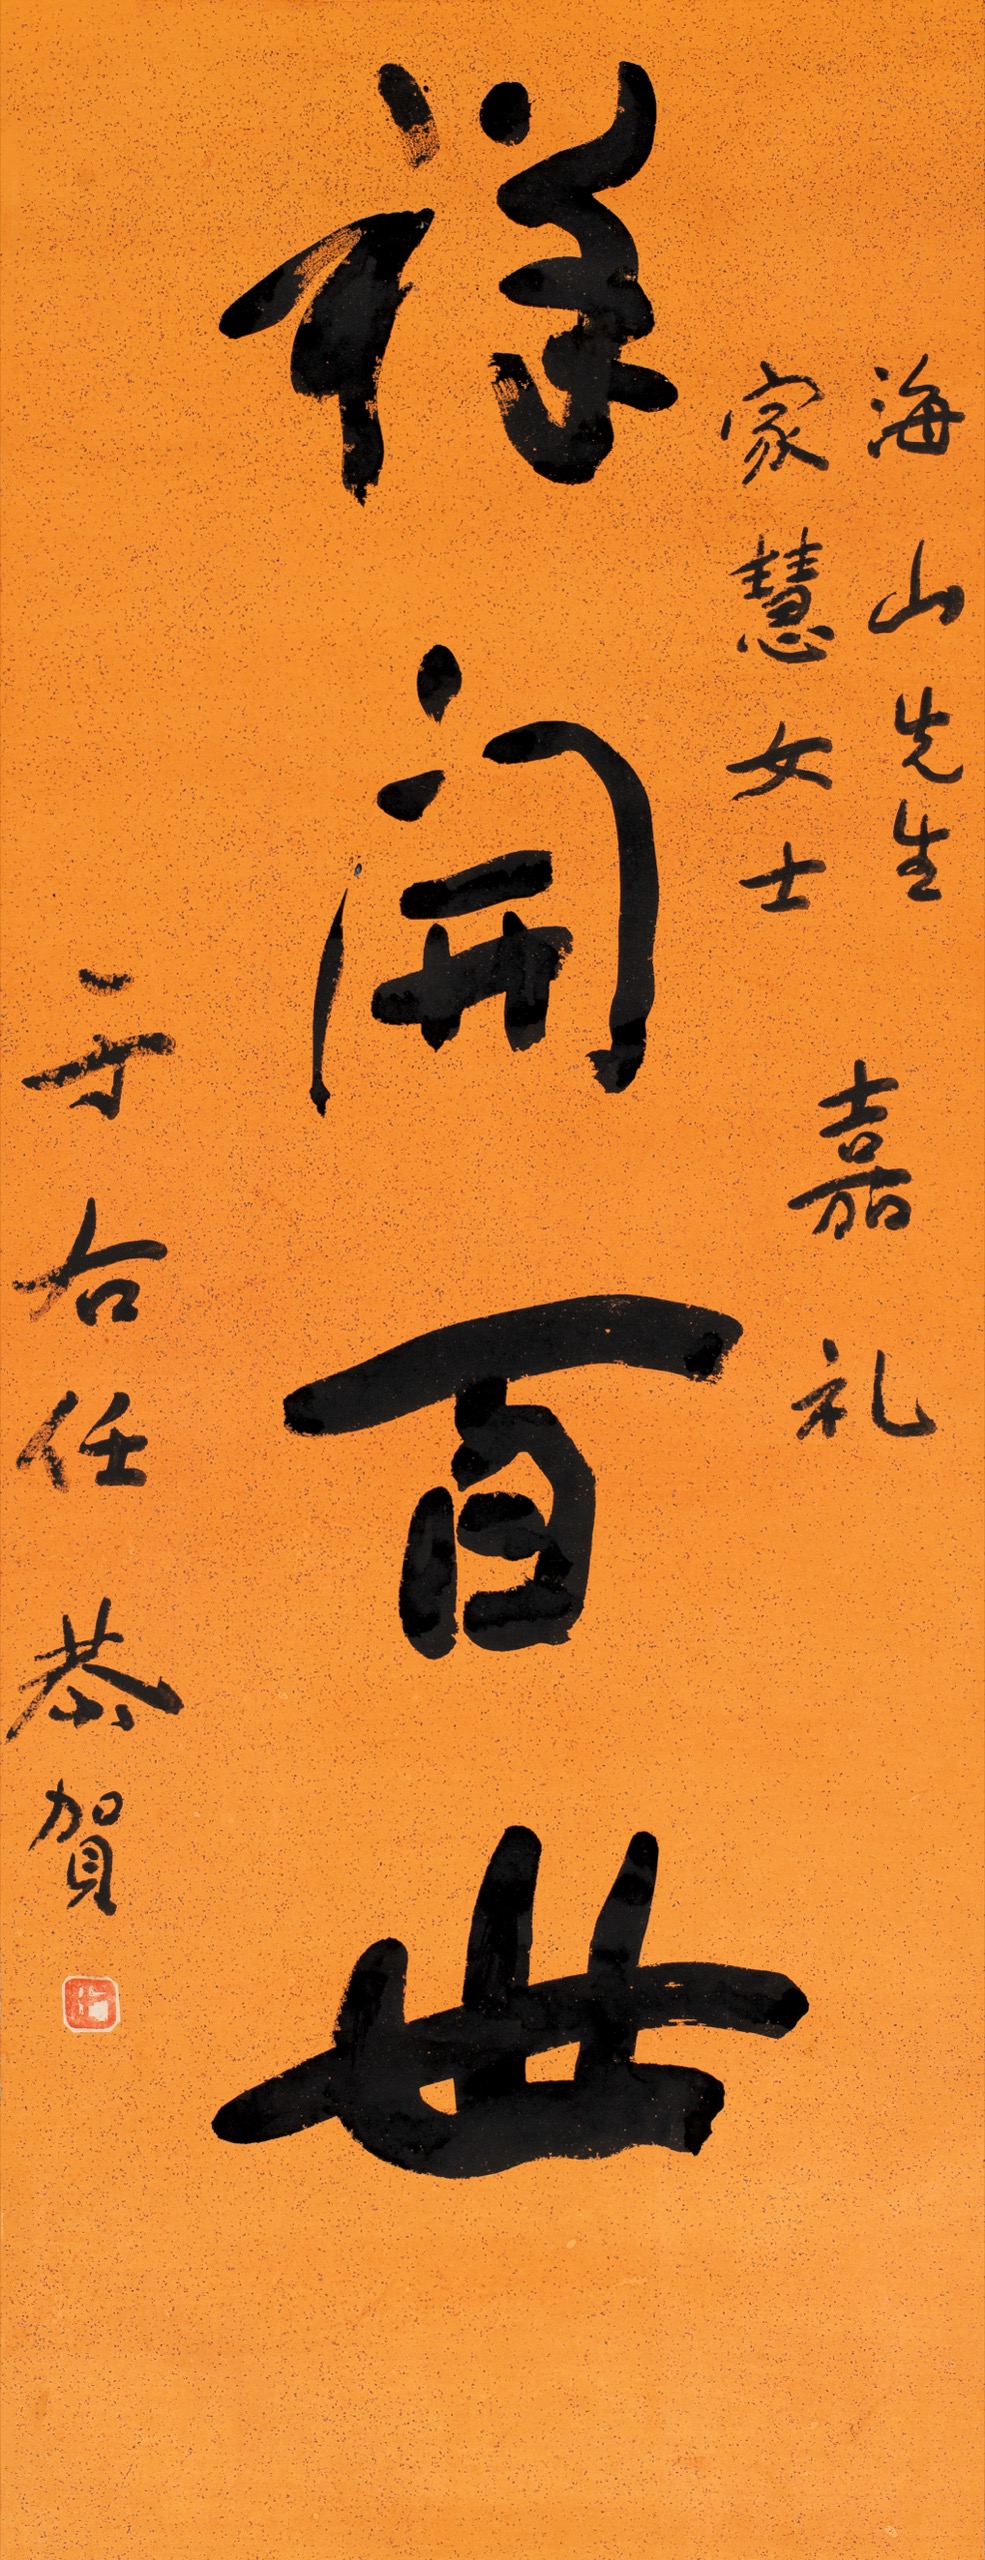 海山先生
家慧女士
嘉礼
祥開百世
于右任恭賀